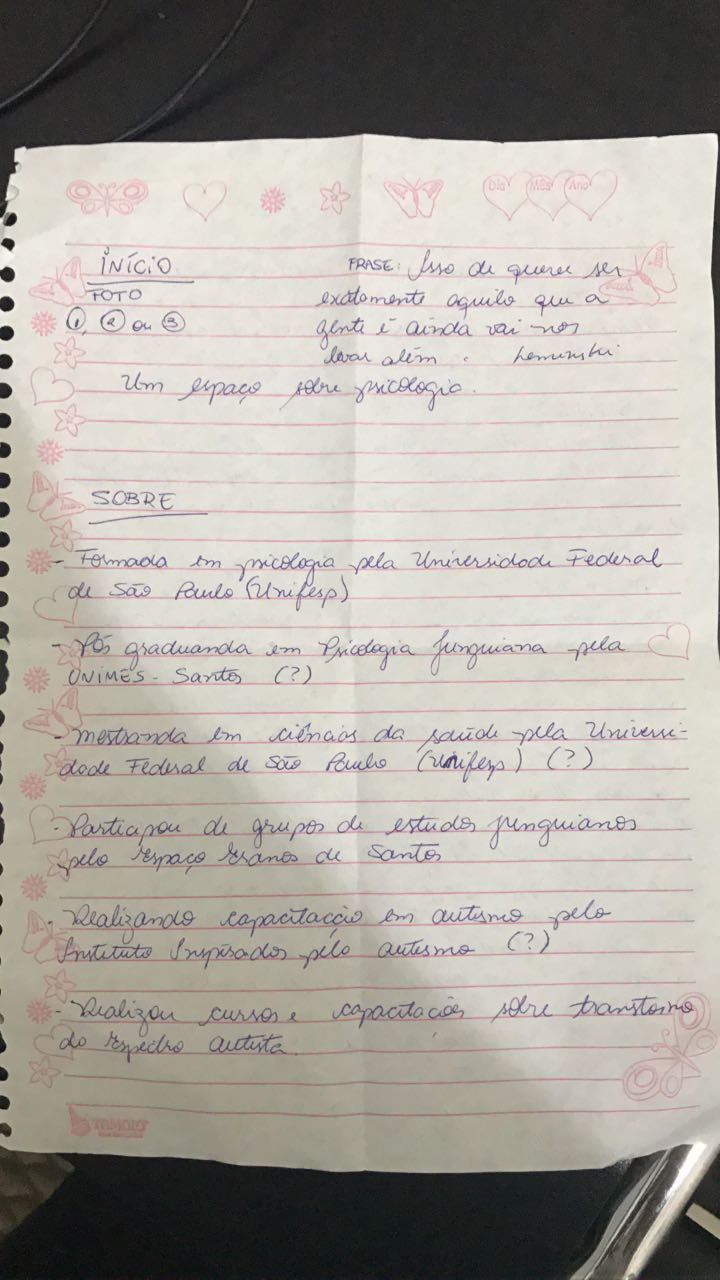 Dia Mês Ano
INÍCIO
FOTO
1, 2 ou 3
FRASE: Isso de querer ser
exatamente aquilo que a
gente é ainda vai nos
levar além. Leminski
Um espaço sobre psicologia.
SOBRE
- Formada em psicologia pela Universidade Federal
de São Paulo (Unifesp)
- Pós graduanda em Psicologia Junguiana pela
UNIMES - Santos (?)
- Mestranda em ciências da saúde pela Universi-
dade Federal de São Paulo (Unifesp) (?)
- Participou de grupos de estudos junguianos
pelo Espaço Eranos de Santos
- Realizando capacitação em autismo pelo
Instituto Inspirados pelo autismo (?)
- Realizou cursos e capacitações sobre transtorno
do Espectro Autista.